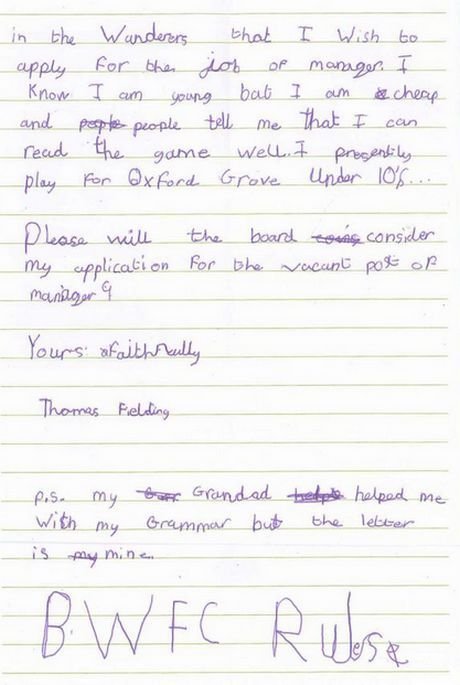 in the Wanderers that I wish to
apply for the job of manager. I
know I am young but I am cheap
and people people tell me that I can
read the game well. I presentily
play for Oxford Grove Under 10's...
Please will the board consider
my application for the vacant post of
manager?
Yours faithfully
Thomas Fielding
p.s. my Grandad helped me
with my Grammar but the letter
is my mine.
B.WFC Rulese